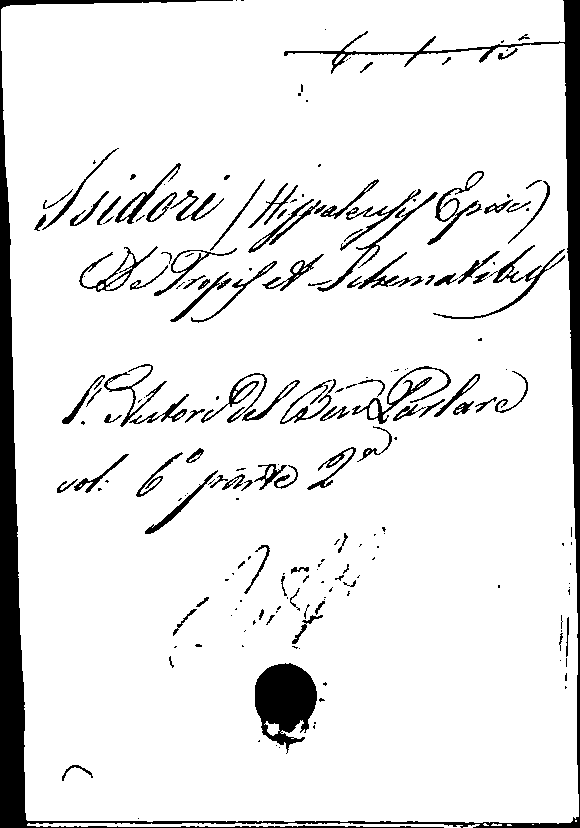 6, 1, 15
Isidori (Hippalensis Episc.)
De Tropis et Schematibus
V. Autori del Ben Parlare
vol: 6º parte 2ª